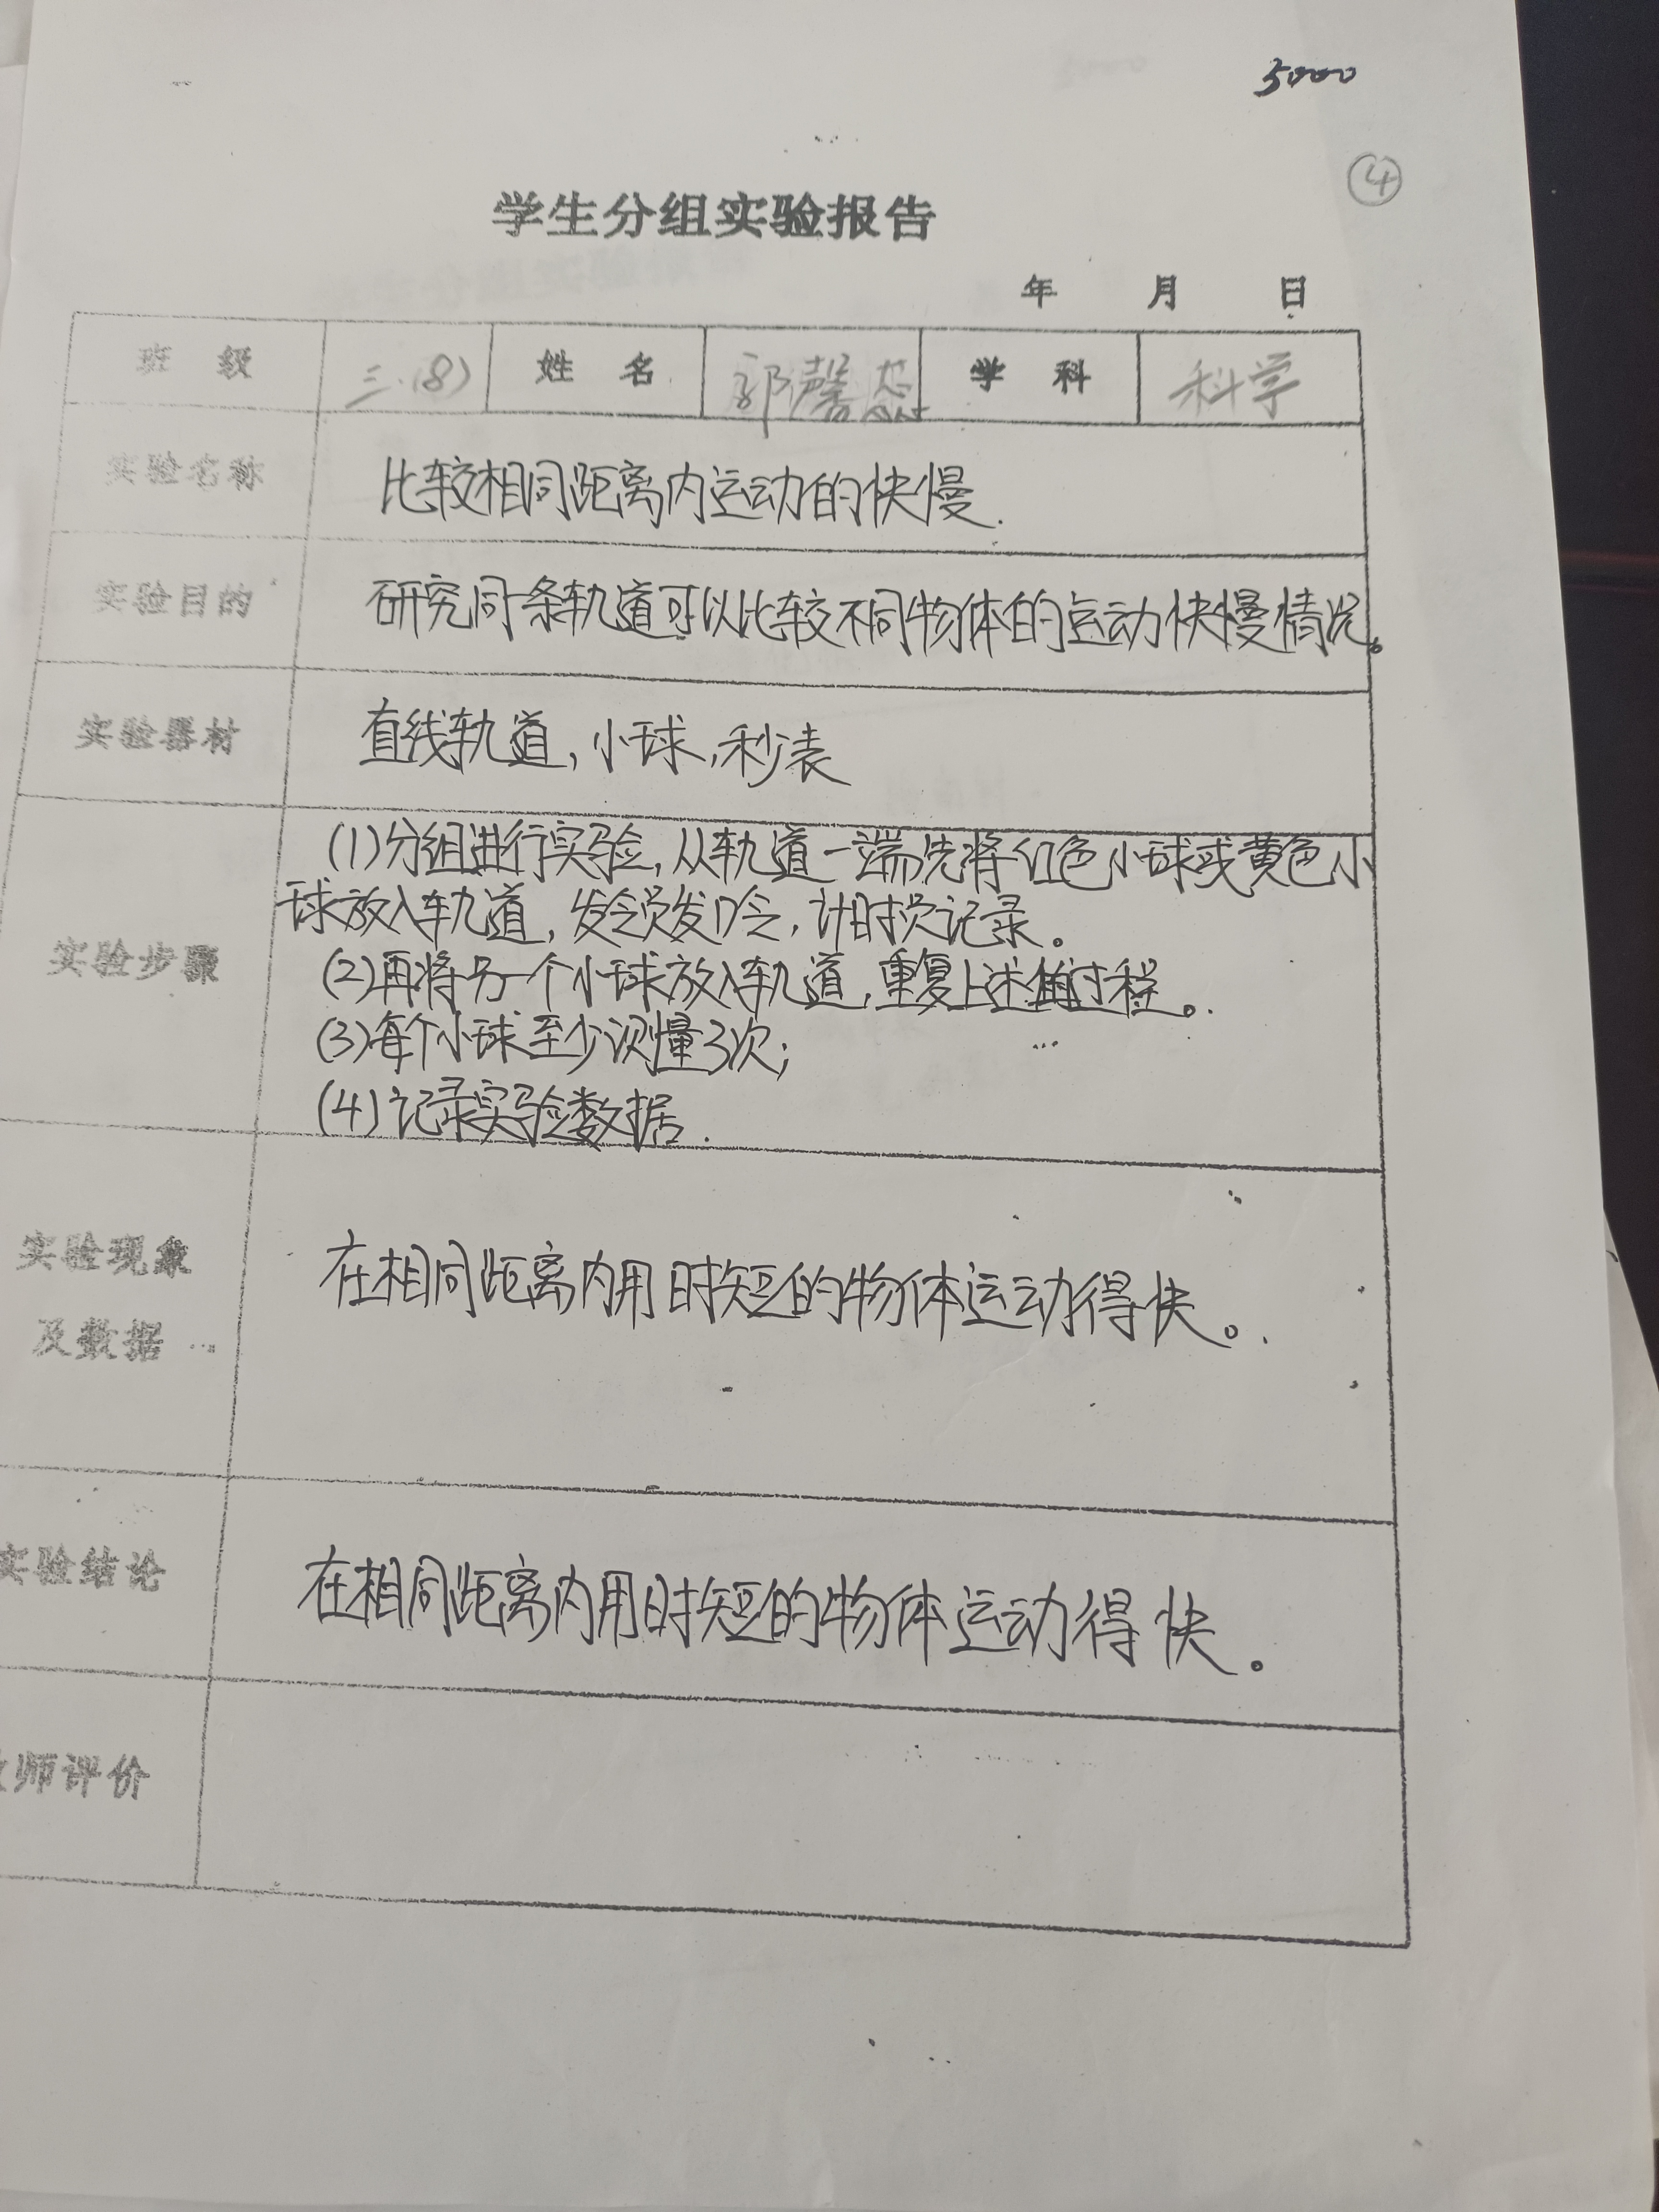 5000
④
学生分组实验报告
年 月 日
班 级 三.(8) 姓 名 郭馨 学 科 科学
实验名称 比较相同距离内运动的快慢.
实验目的 研究同条轨道可以比较不同物体的运动快慢情况。
实验器材 直线轨道,小球,秒表
实验步骤
(1)分组进行实验,从轨道一端先将红色小球或黄色小
球放入轨道,发令员发口令,计时员记录。
(2)再将另一个小球放入轨道,重复上述的过程。
(3)每个小球至少测量3次;
(4)记录实验数据.
实验现象
及数据
在相同距离内用时短的物体运动得快。
实验结论 在相同距离内用时短的物体运动得快。
师评价